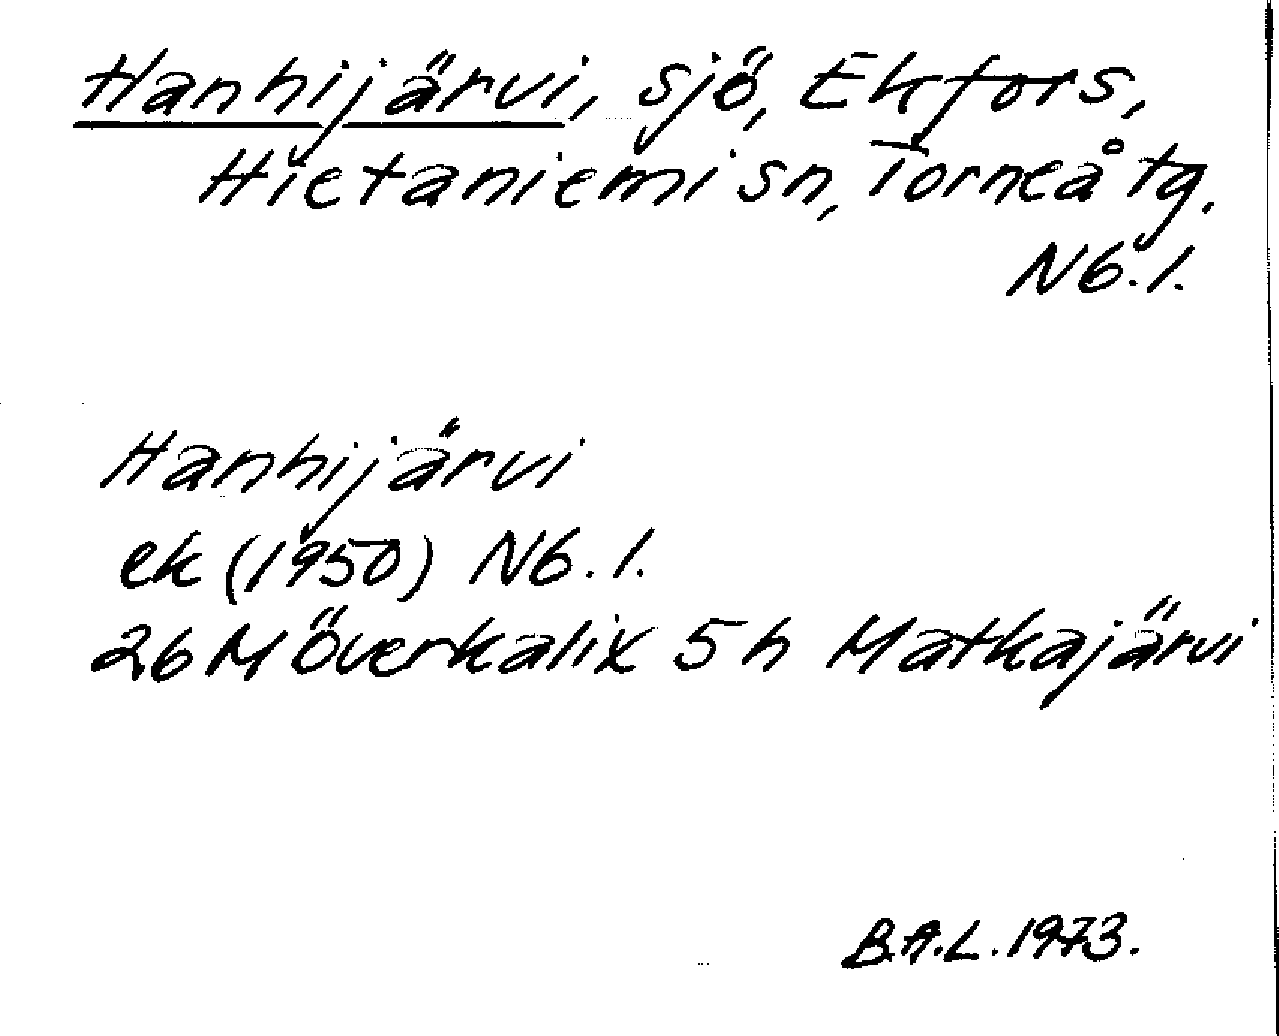 Hanhijärvi, sjö, Ekfors,
Hietaniemi sn, Torneå tg.
Nb.l.
Hanhijärvi
ek (1950) Nb.l.
26 M Överkalix 5 h Matkajärvi
B.A.L. 1973.